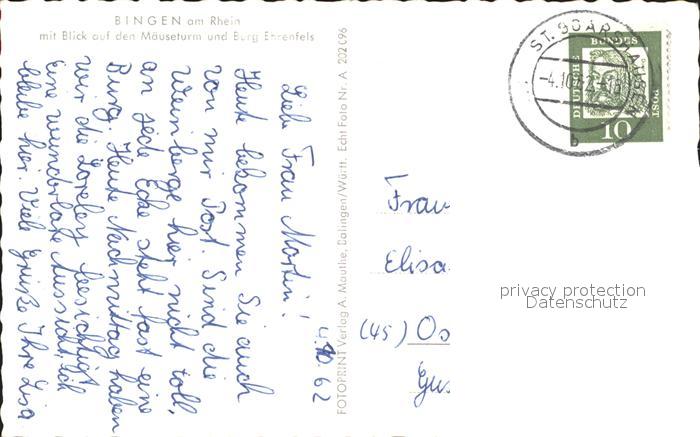 BINGEN am Rhein
mit Blick auf den Mäuseturm und Burg Ehrenfels
4.10.62
Liebe Frau Martin!
Heute bekommen Sie auch
von mir Post. Sind die
Weinberge hier nicht toll,
an jede Ecke steht fast eine
Burg. Heute Nachmittag haben
wir die Loreley besichtigt
eine wunderbare Aussicht, ich
bleibe hier. Viele Grüße Ihre Lisa
FOTOPRINT Verlog A. Mauthe, Balingen/Württ. Echt Foto Nr. A 202 096
ST. GOARSHAUSEN
-4.10.62
b
DEUTSCHE
BUNDES
POST
10
Frau
Elisa
(45) Os
Gus
privacy protection
Datenschutz